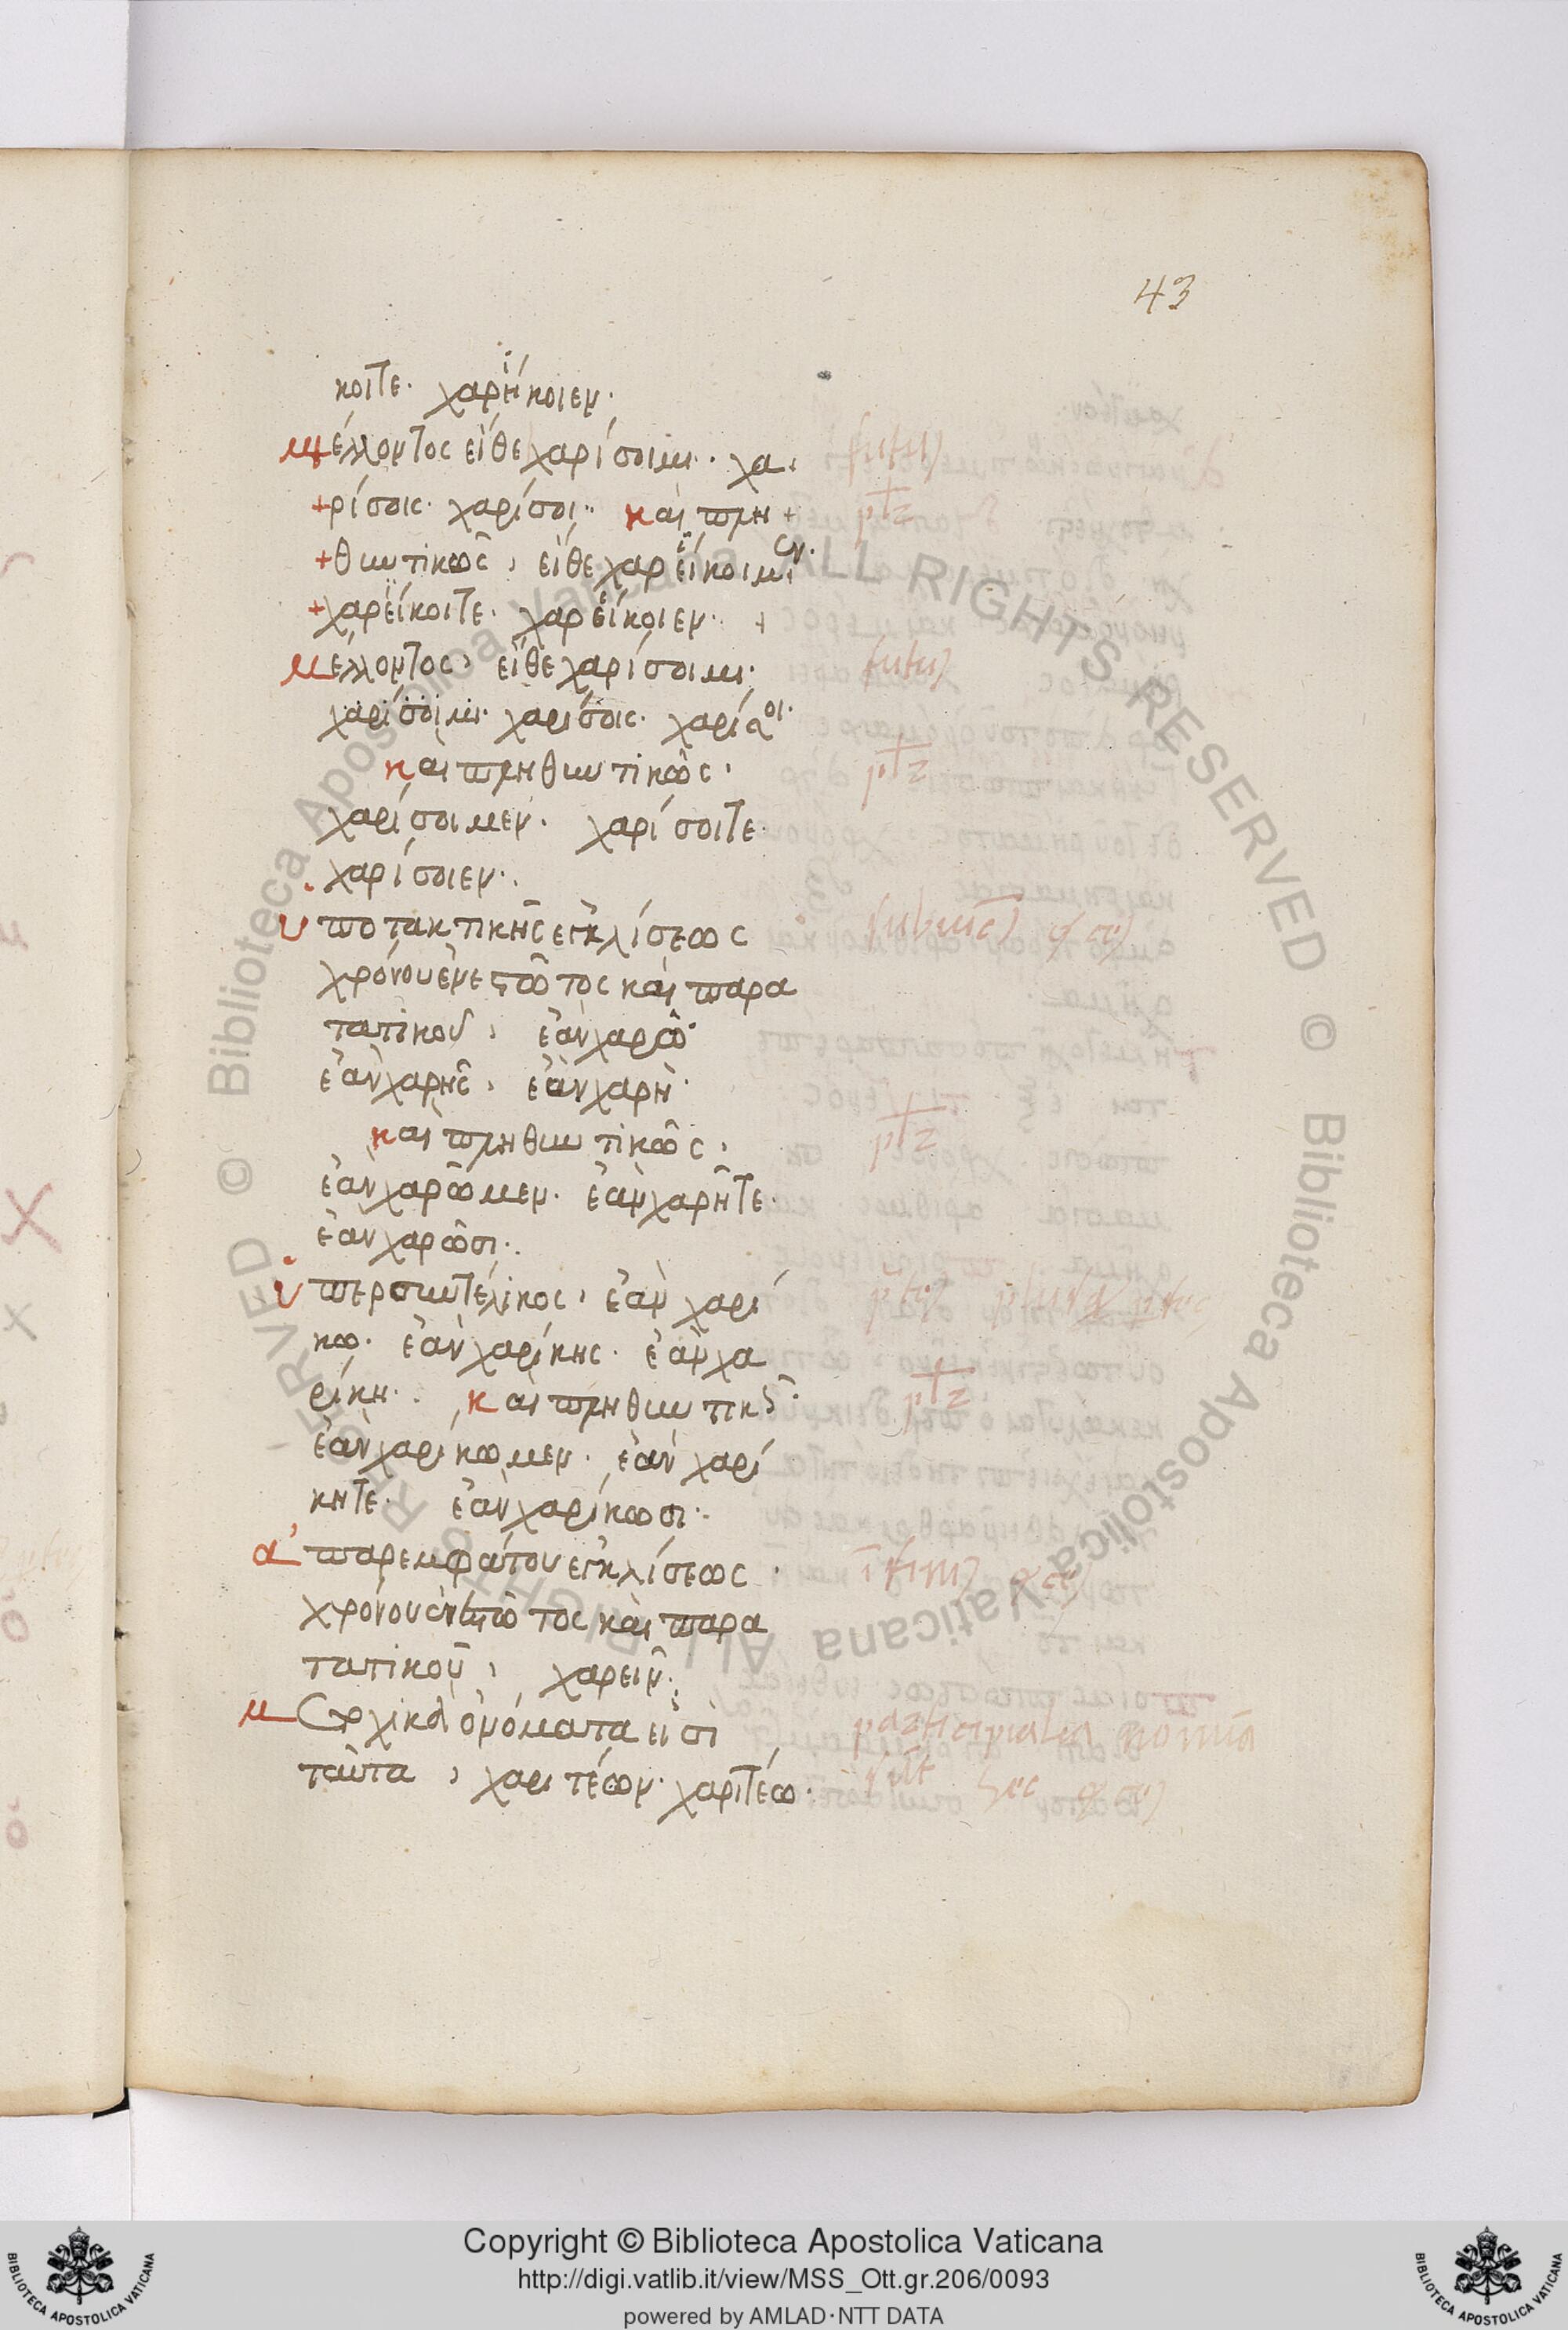 43
κοιτε· χαρήκοιεν·
μέλλοντος εἴθε χαρίσοιμι· χα
+ρίσοις· χαρίσοι·· καὶ πλη +
+θυντικῶς, εἴθε χαρείκοιμεν·
+χαρείκοιτε· χαρείκοιεν· +
μέλλοντος, εἴθε χαρίσοιμι·
χαρίσοιμι· χαρίσοις· χαρίσοι·
καὶ πληθυντικῶς,
χαρίσοιμεν· χαρίσοιτε·
χαρίσοιεν··
ὑποτακτικῆς ἐγκλίσεως
χρόνου ἐνεστῶτος καὶ παρα
τατικοῦ, ἐὰν χαρῶ·
ἐὰν χαρῆς, ἐὰν χαρῆ·
καὶ πληθυντικῶς,
ἐὰν χαρῶμεν· ἐὰν χαρῆτε·
ἐὰν χαρῶσι··
ὑπερσυντέλικος, ἐὰν χαρί
κω· ἐὰν χαρίκης· ἐὰν χα
ρίκη· καὶ πληθυντικῶς·
ἐὰν χαρίκωμεν· ἐὰν χαρί
κητε· ἐὰν χαρίκωσι··
ἀπαρεμφάτου ἐγκλίσεως
χρόνου ἐνεστῶτος καὶ παρα
τατικοῦ, χαρεῖν·
μετοχικὰ ὀνόματα εἰσὶ
ταῦτα, χαριτέον· χαριτέω·
futuri
plz
futuri
plz
plz
plz
participialia nomina
Copyright © Biblioteca Apostolica Vaticana
http://digi.vatlib.it/view/MSS_Ott.gr.206/0093
powered by AMLAD·NTT DATA
BIBLIOTECA APOSTOLICA VATICANA
BIBLIOTECA APOSTOLICA VATICANA
© Biblioteca Apostolica Vaticana ALL RIGHTS RESERVED
© Biblioteca Apostolica Vaticana ALL RIGHTS RESERVED